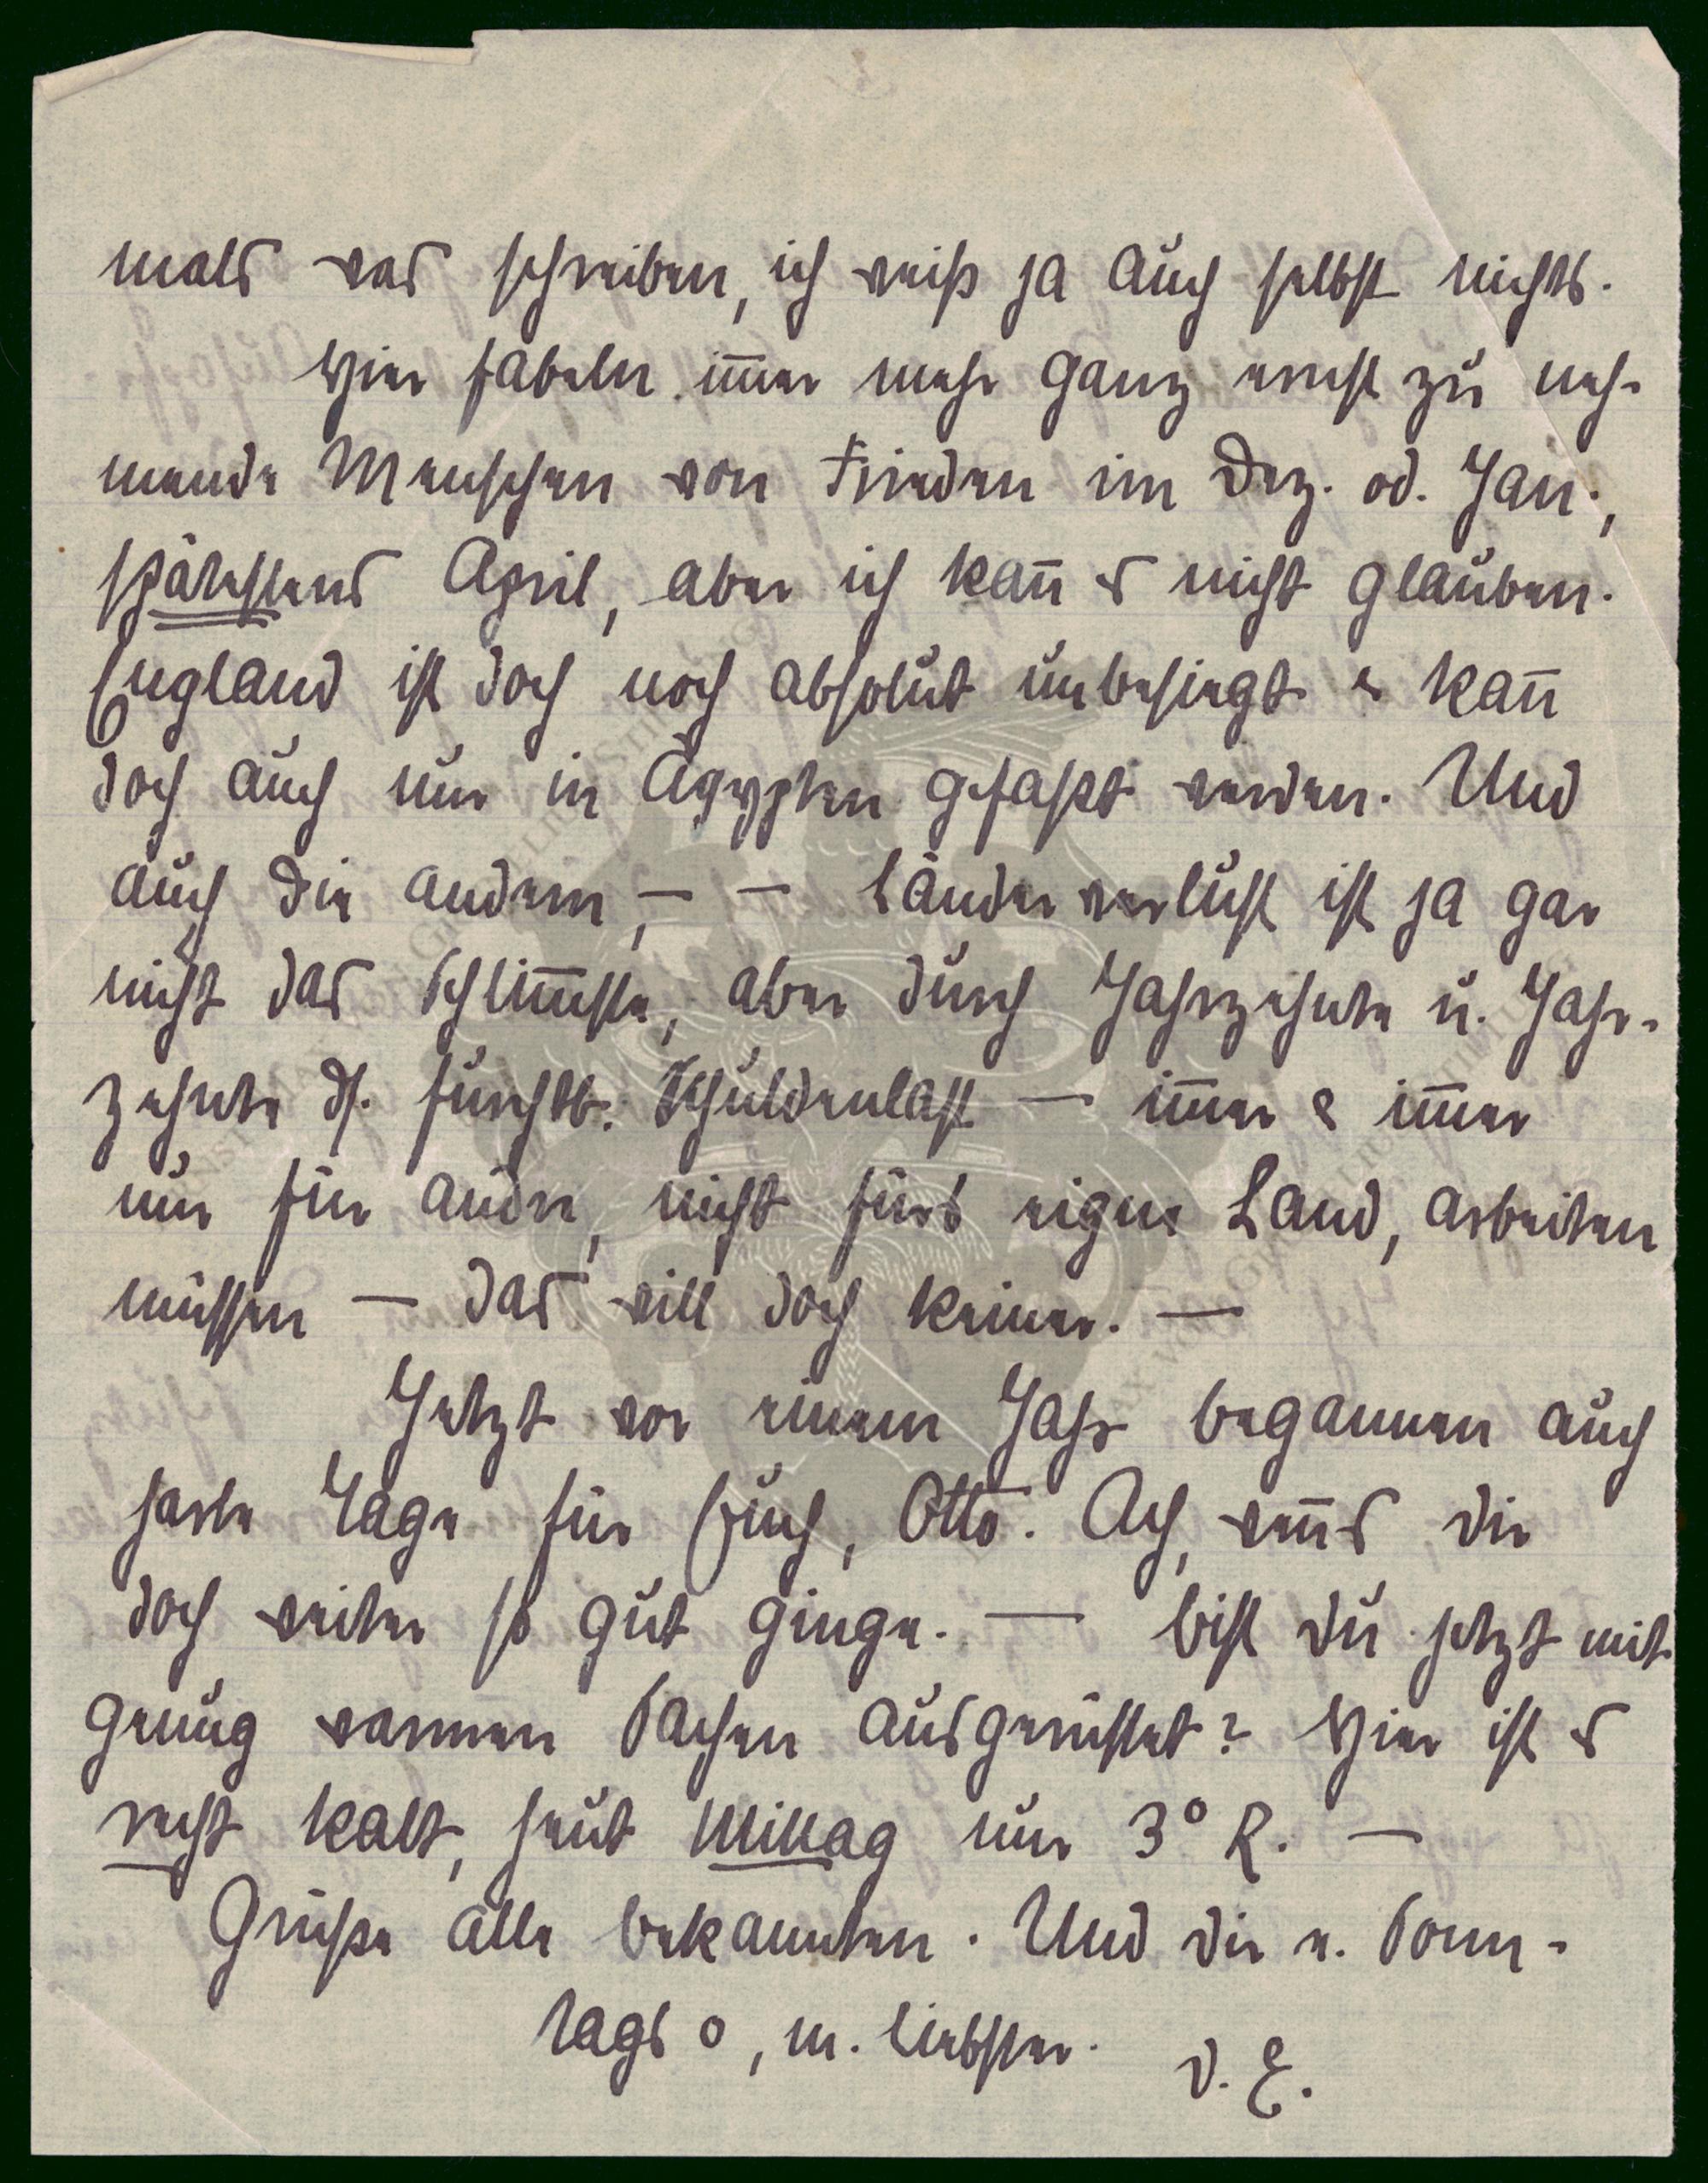 mals was schreiben, ich weiß ja auch selbst nichts.
Hier fabeln im̅er mehr ganz ernst zu neh-
mende Menschen von Frieden im Dez. od. Jan.,
spätestens April, aber ich kan̅ es nicht glauben.
England ist doch noch absolut unbesiegt & kan̅
doch auch nur in Ägypten gefaßt werden. Und
auch die andern, – – Länderverlust ist ja gar
nicht das Schlim̅ste, aber durch Jahrzehnte u. Jahr-
zehnte ds. furchtb. Schuldenlast – im̅er & im̅er
nur für andre, nicht fürs eigne Land, arbeiten
müssen – das will doch keiner. –
Jetzt vor einem Jahr begannen auch
harte Tage für Euch, Otto. Ach, wen̅s dir
doch weiter so gut ginge. – bist du jetzt mit
genug warmen Sachen ausgerüstet? Hier ist es
recht kalt, heut Mittag nur 3° R. –
Grüße alle bekannten. Und dir e. Sonn-
tags o, m. liebster. d. E.